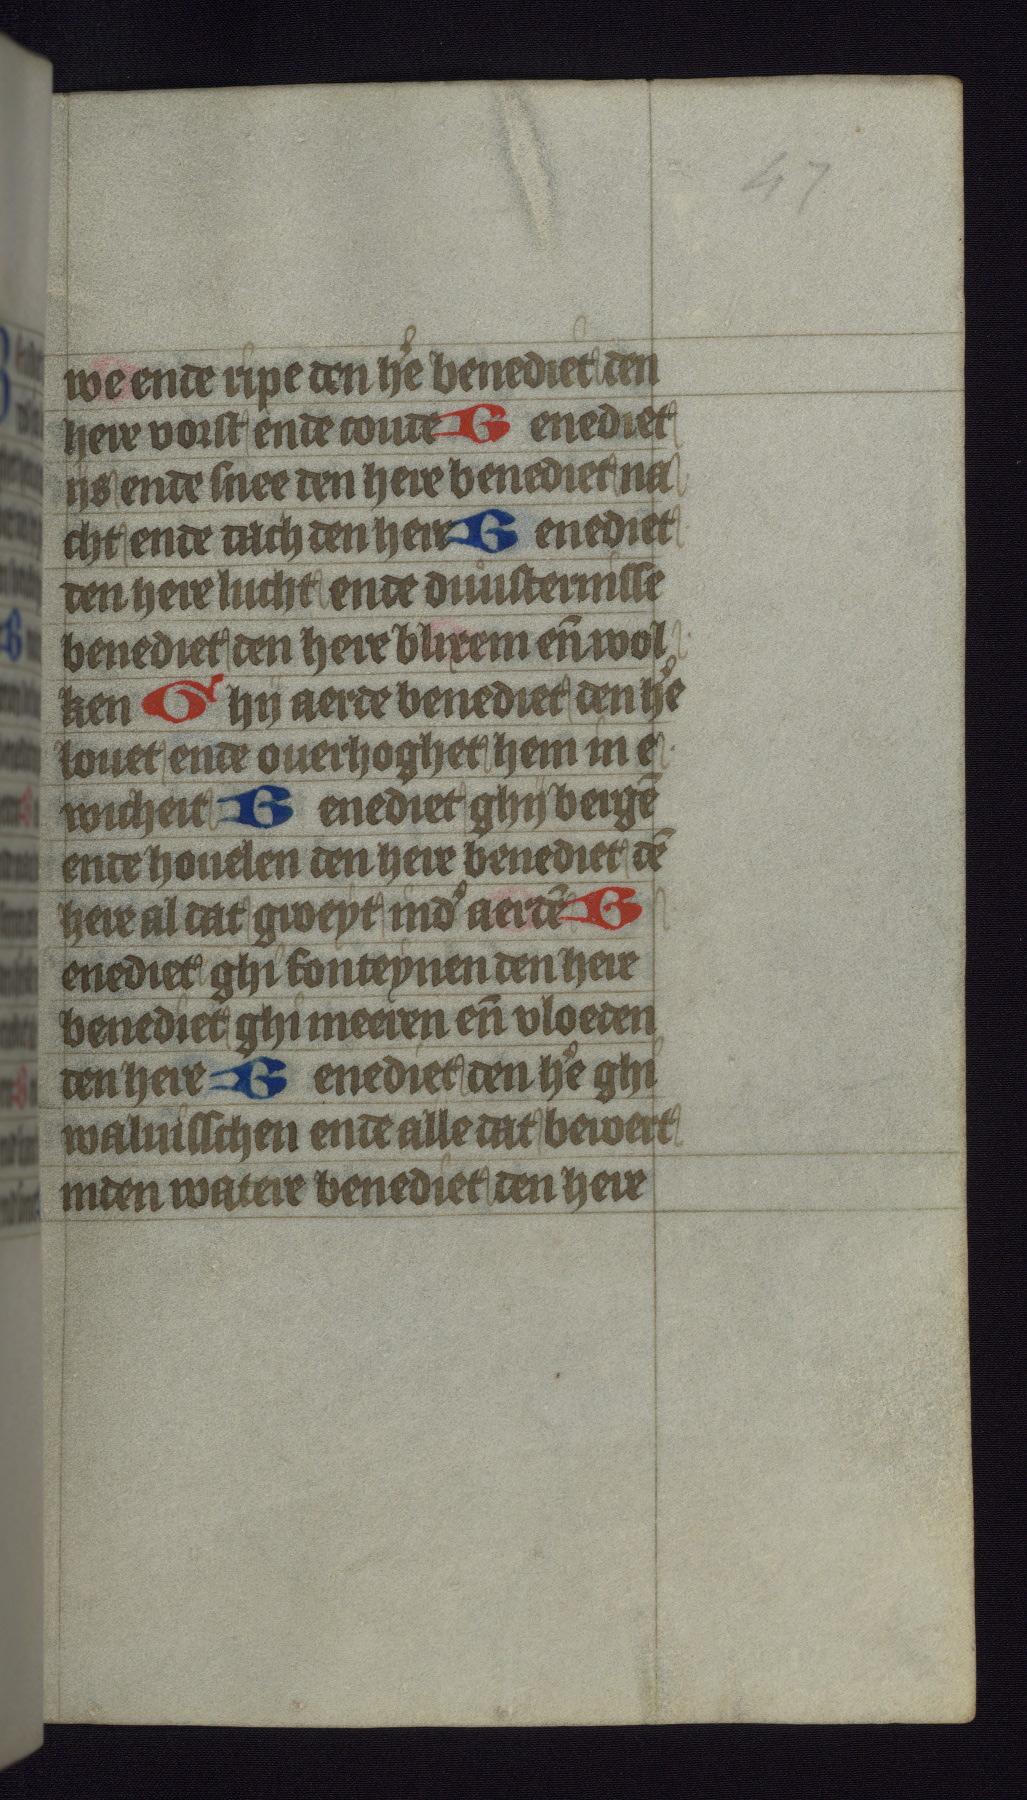 47
we ende ripe den he benediet den
here vorst ende coude Benediet
ijs ende snee den here benediet na
cht ende dach den here Benediet
den here lucht ende duusternisse
benediet den here blixem en̄ wol
ken Ghij aerde benediet den he
louet ende ouerhoghet hem in e
wicheit Benediet ghij bergē
ende houelen den here benediet dē
here al dat gweyt ind' aerdē B
enediet ghi fonteynen den here
benediet ghi meeren en̄ vloeden
den here Benediet den he ghi
waluisschen ende alle dat bewert
inden watere benediet den here